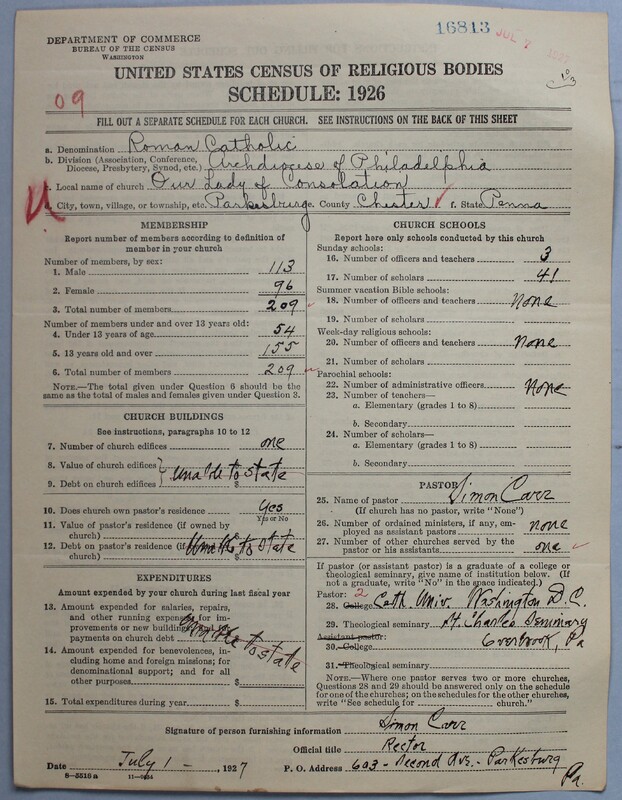 16813 JUL 7 1927
DEPARTMENT OF COMMERCE
BUREAU OF THE CENSUS
WASHINGTON
UNITED STATES CENSUS OF RELIGIOUS BODIES
SCHEDULE: 1926
09
FILL OUT A SEPARATE SCHEDULE FOR EACH CHURCH. SEE INSTRUCTIONS ON THE BACK OF THIS SHEET
a. Denomination Roman Catholic
b. Division (Association, Conference, Diocese, Presbytery, Synod, etc.) Archdiocese of Philadelphia
c. Local name of church Our Lady of Consolation
d. City, town, village, or township, etc. Parkesburg e. County Chester f. State Penna
MEMBERSHIP
Report number of members according to definition of
member in your church
Number of members, by sex:
1. Male 113
2. Female 96
3. Total number of members 209
Number of members under and over 13 years old:
4. Under 13 years of age 54
5. 13 years old and over 155
6. Total number of members 209
NOTE.—The total given under Question 6 should be
the same as the total of males and females given under Question 3.
CHURCH BUILDINGS
See instructions, paragraphs 10 to 12
7. Number of church edifices one
8. Value of church edifices
9. Debt on church edifices $ Unable to state
10. Does church own pastor's residence Yes
Yes or No
11. Value of pastor's residence (if owned by
church)
12. Debt on pastor's residence (if
church) Unable to state
EXPENDITURES
Amount expended by your church during last fiscal year
13. Amount expended for salaries, repairs,
and other running expenses; for
improvements or new buildings
payments on church debt Unable to state
14. Amount expended for benevolences,
including home and foreign missions; for
denominational support; and for all
other purposes $
15. Total expenditures during year $
CHURCH SCHOOLS
Report here only schools conducted by this church
Sunday schools:
16. Number of officers and teachers 3
17. Number of scholars 41
Summer vacation Bible schools:
18. Number of officers and teachers None
19. Number of scholars
Week-day religious schools:
20. Number of officers and teachers None
21. Number of scholars
Parochial schools:
22. Number of administrative officers None
23. Number of teachers—
a. Elementary (grades 1 to 8)
b. Secondary
24. Number of scholars—
a. Elementary (grades 1 to 8)
b. Secondary
PASTOR
25. Name of pastor Simon Carr
(If church has no pastor, write "None")
26. Number of ordained ministers, if any, em-
ployed as assistant pastors none
27. Number of other churches served by the
pastor or his assistants one
If pastor (or assistant pastor) is a graduate of a college or
theological seminary, give name of institution below. (If
not a graduate, write "No" in the space indicated.)
Pastor: 2
28. College Cath. Univ. Washington D.C.
29. Theological seminary St. Charles Seminary
Assistant pastor: Overbrook, Pa
30. College
31. Theological seminary
NOTE.—Where one pastor serves two or more churches,
Questions 28 and 29 should be answered only on the schedule
for one of the churches; on the schedules for the other churches,
write "See schedule for church."
Signature of person furnishing information Simon Carr
Official title Rector
Date July 1 -, 1927 P. O. Address 603 - Second Ave. - Parkesburg
Pa.
8—5516a 11—9434